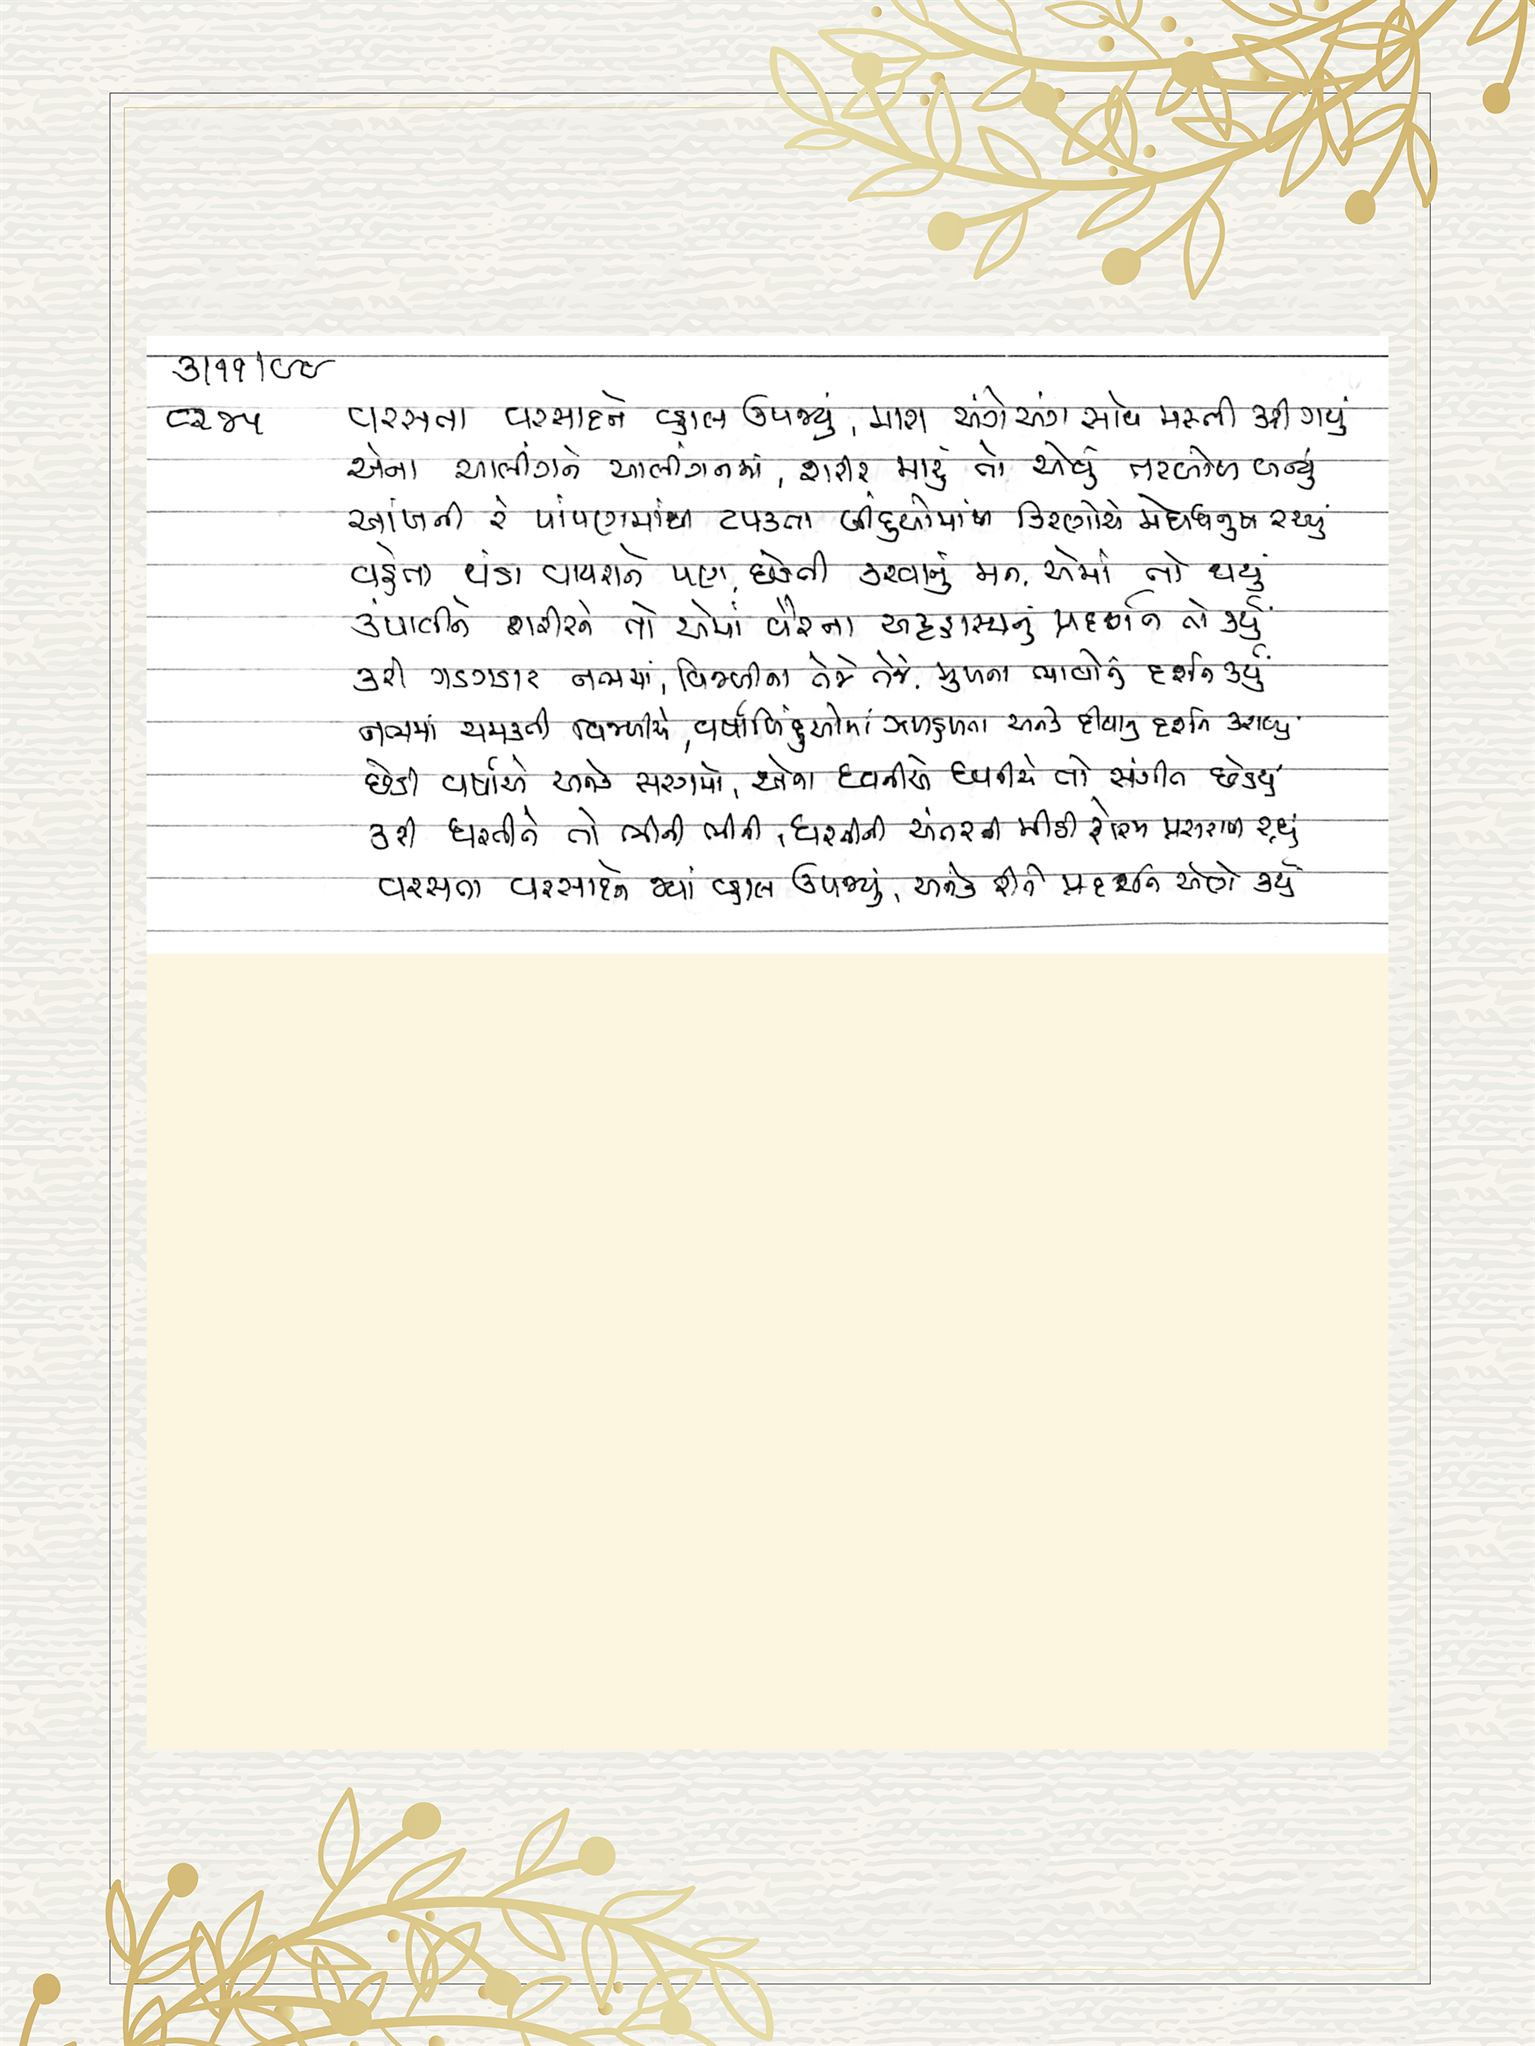 ૩/૧૧/૯૯
૮૨૭૫ વરસતા વરસાદને વ્હાલ ઉપજ્યું, મારા અંગેઅંગ સાથે મસ્તી કરી ગયું
એના આલીંગને આલીંગનમાં, શરીર મારું તો એવું તરબોળ બન્યું
આંખની રે પાંપણમાંથી ટપકતા બીંદુઓમાંથી કિરણોએ મેઘધનુષ રચ્યું
વહેતા થંડા વાયરાને પણ, છેડતી કરવાનું મન, એમાં તો થયું
કંપાવીને શરીરને તો એમાં વૈરના અટ્ટહાસ્યનું પ્રદર્શન તો કર્યું
કરી ગડગડાટ નભમાં, વિજળીના તેજે તેજે, મુખના ભાવોનું દર્શન કર્યું
નભમાં ચમકતી વિજળીએ, વર્ષાબિંદુઓમાં ઝળહળતા અનેક દીવાનું દર્શન કરાવ્યું
છેડી વર્ષાએ અનેક સરગમો, એના ધ્વનીએ ધ્વનીએ તો સંગીત છેડયું
કરી ધરતીને તો ભીની ભીની, ધરતીની અંતરની મીઠી ફોરમ પ્રસરાવી રહ્યું
વરસતા વરસાદને જ્યાં વ્હાલ ઉપજ્યું, અનેક રીતે પ્રદર્શન એણે કર્યું